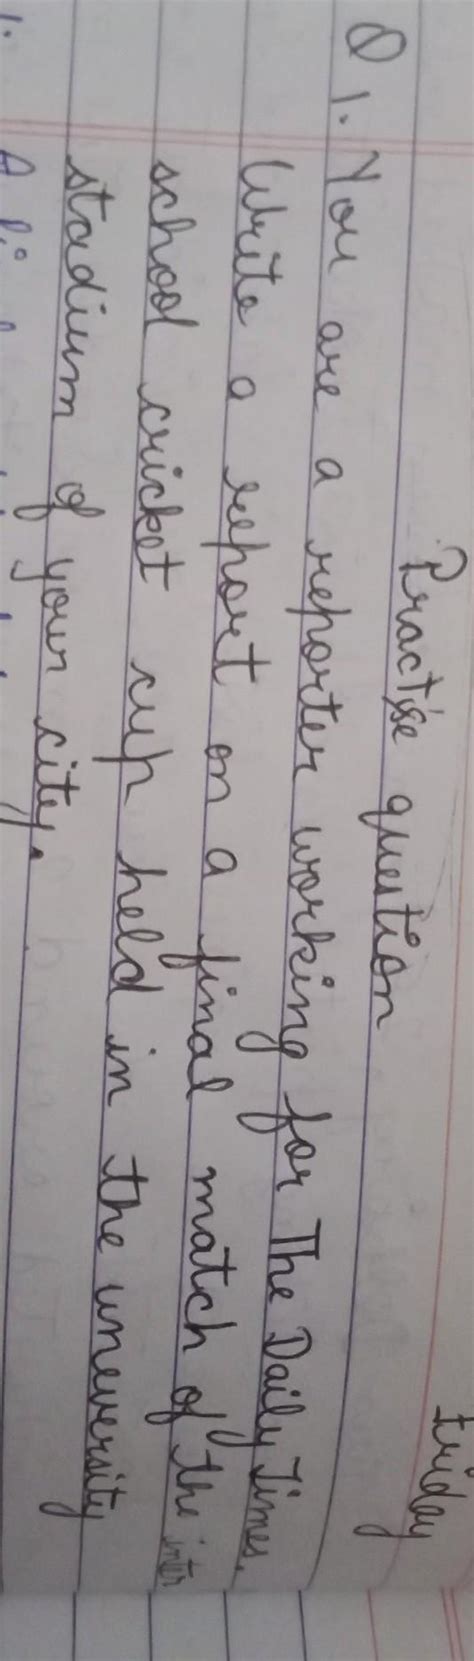 Friday
Practise question
Q 1. You are a reporter working for The Daily Times.
Write a report on a final match of the inter
school cricket cup held in the uneversity
stadium of your city.
1.